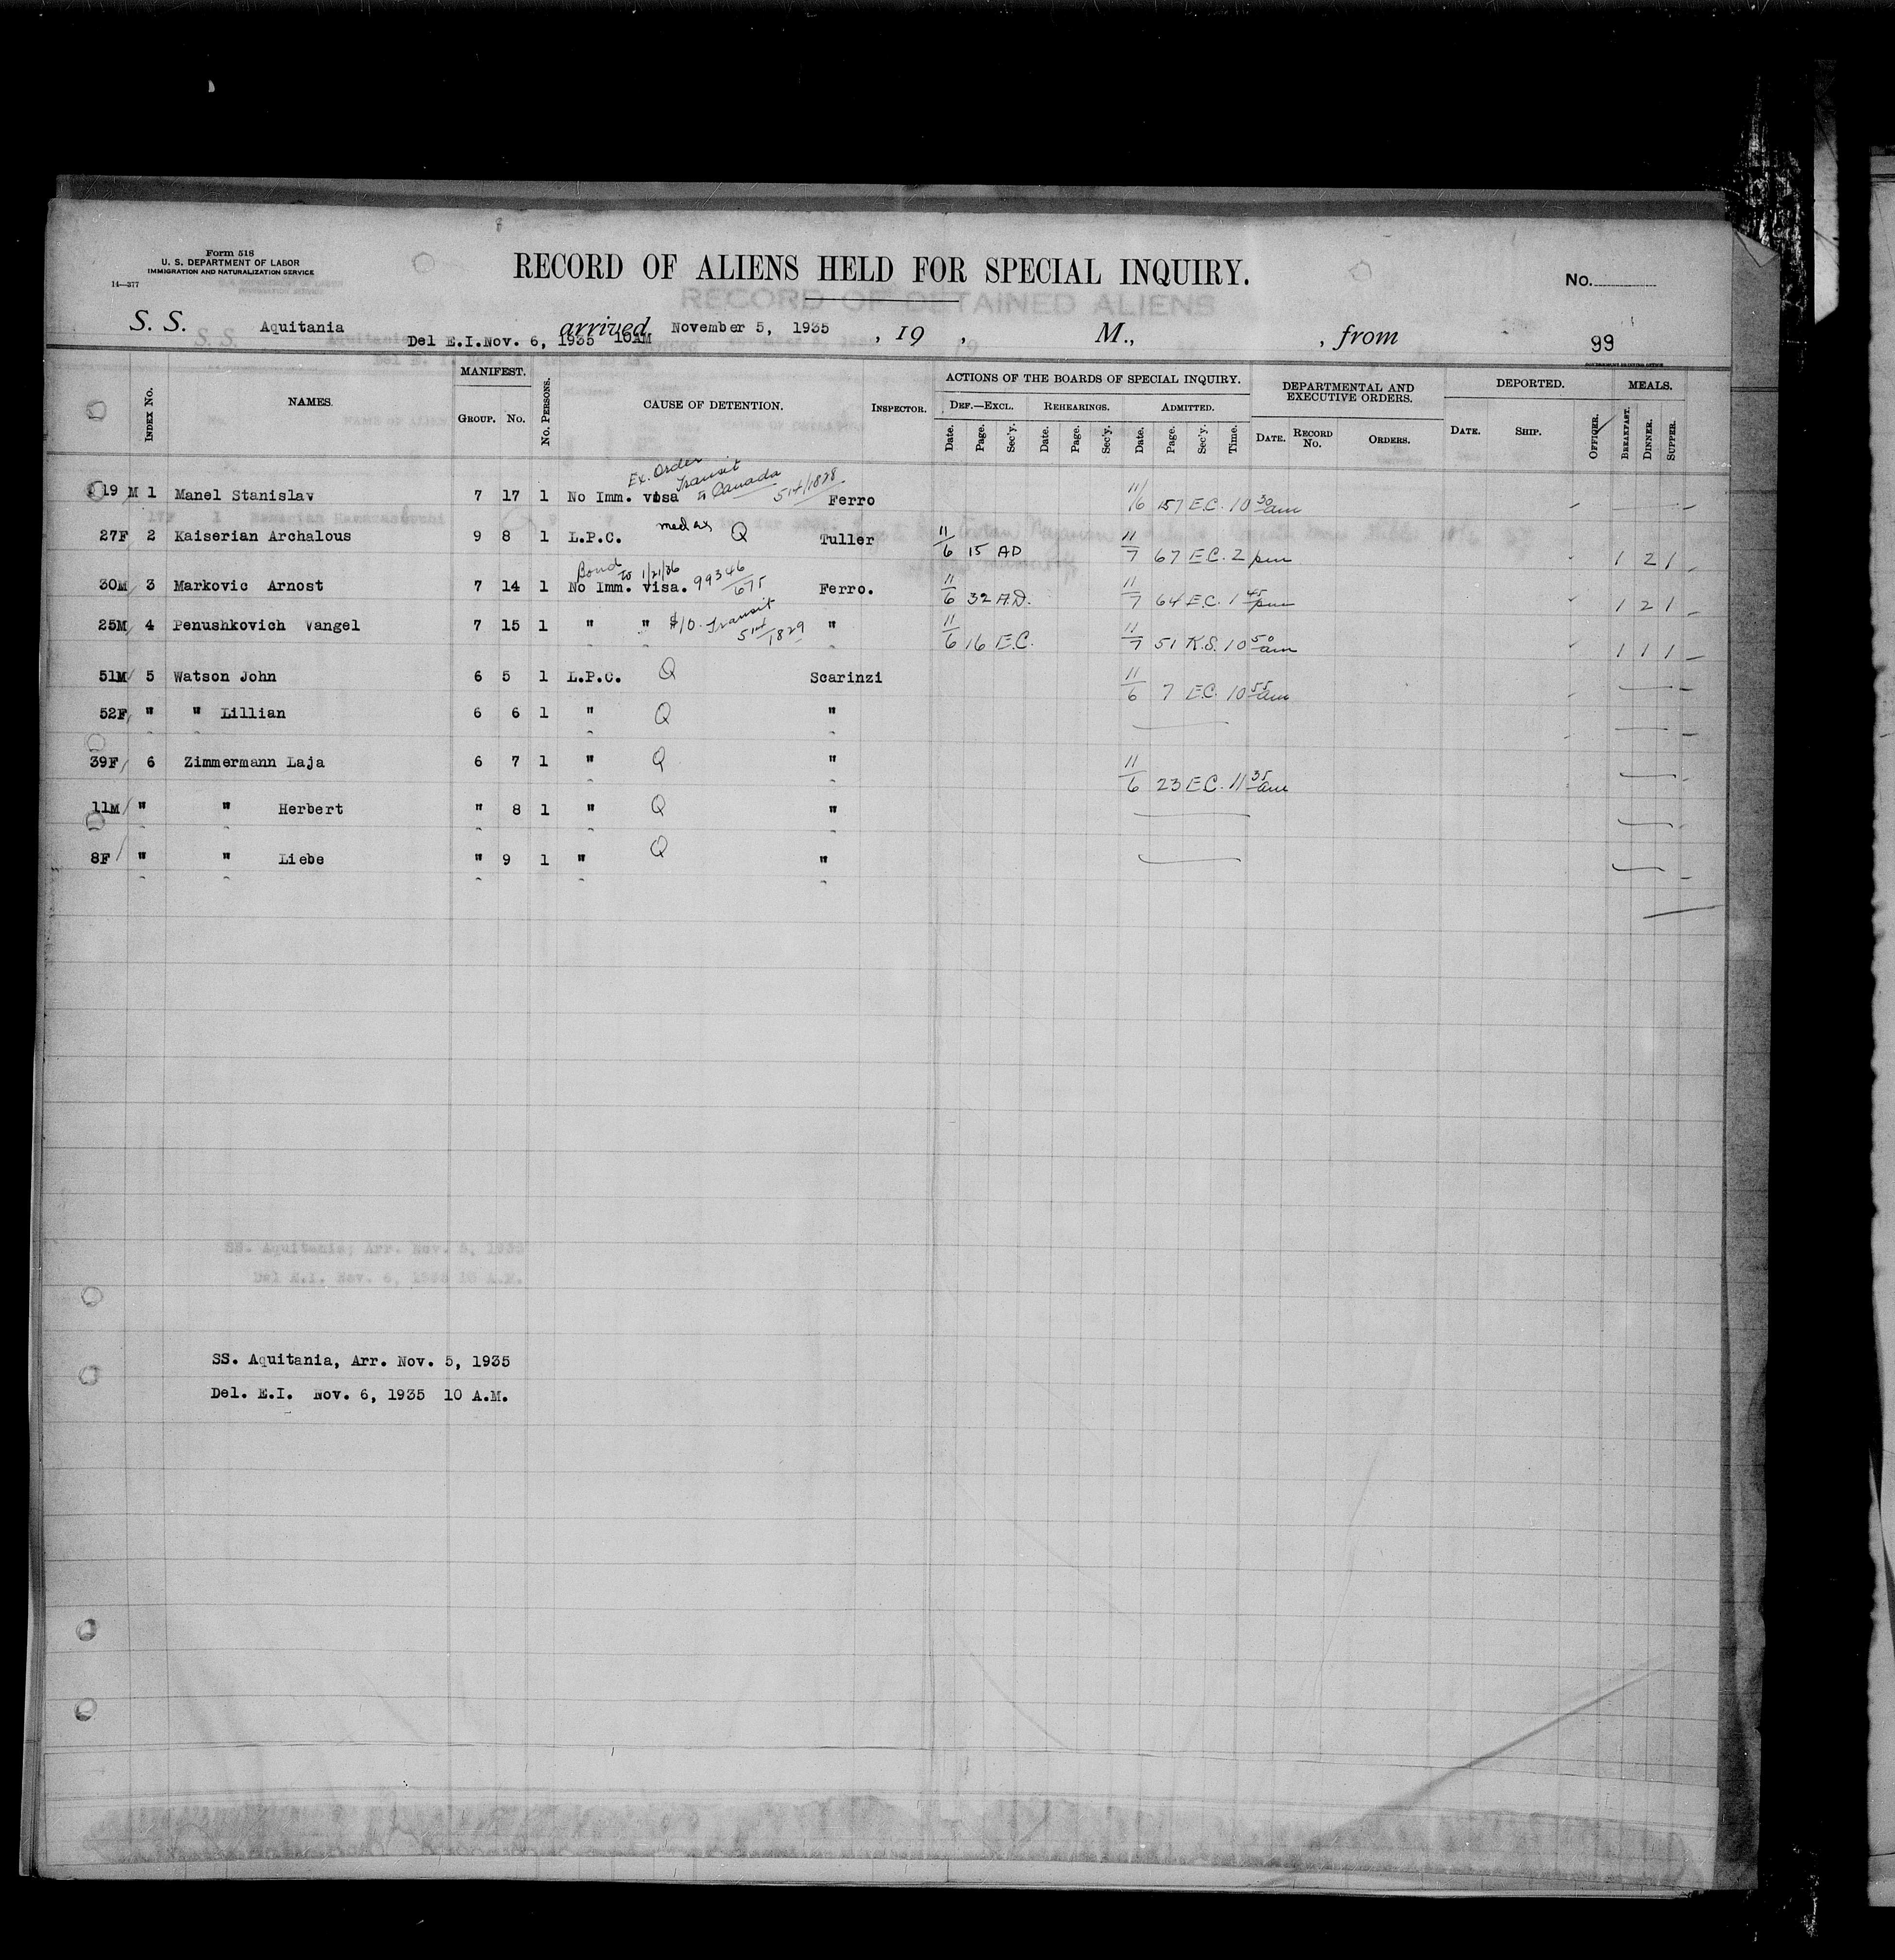 Form 518
U. S. DEPARTMENT OF LABOR
IMMIGRATION AND NATURALIZATION SERVICE
14—377
RECORD OF ALIENS HELD FOR SPECIAL INQUIRY.
No.
S. S. Aquitania arrived November 5, 1935 , 19 , M., , from 99
Del E.I.Nov. 6, 1935 10AM
GOVERNMENT PRINTING OFFICE
INDEX No. NAMES. MANIFEST. GROUP. No. No. PERSONS. CAUSE OF DETENTION. INSPECTOR. ACTIONS OF THE BOARDS OF SPECIAL INQUIRY. DEF.—EXCL. REHEARINGS. ADMITTED. DEPARTMENTAL AND EXECUTIVE ORDERS. DEPORTED. MEALS.
Date. Page. Sec'y. Date. Page. Sec'y. Date. Page. Sec'y. Time. DATE. RECORD No. ORDERS. DATE. SHIP. OFFICER. BREAKFAST. DINNER. SUPPER.
Ex. Order Transit to Canada
19 M 1 Manel Stanislav 7 17 1 No Imm. visa 514/1828 Ferro 11/6 157 E.C. 10 30 am
27F 2 Kaiserian Archalous 9 8 1 L.P.C. med ax Q Tuller 11/6 15 AD 11/7 67 E.C. 2 pm 1 2 1
Bond to 1/21/36
30M 3 Markovic Arnost 7 14 1 No Imm. visa. 99346/675 Ferro. 11/6 32 A.D. 11/7 64 E.C. 1 45 pm 1 2 1
25M 4 Penushkovich Vangel 7 15 1 " " $10. Transit 514/1829 " 11/6 16 E.C. 11/7 51 K.S. 10 50 am 1 1 1
51M 5 Watson John 6 5 1 L.P.C. Q Scarinzi 11/6 7 E.C. 10 55 am
52F " " Lillian 6 6 1 " Q "
39F 6 Zimmermann Laja 6 7 1 " Q " 11/6 23 E.C. 11 35 am
11M " " Herbert " 8 1 " Q "
8F " " Liebe " 9 1 " Q "
SS. Aquitania, Arr. Nov. 5, 1935
Del. E.I. Nov. 6, 1935 10 A.M.